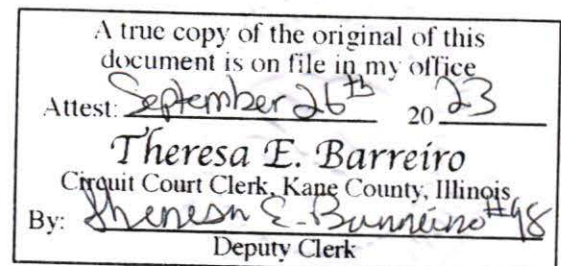 A true copy of the original of this
document is on file in my office
Attest: September 26th 20 23
Theresa E. Barreiro
Circuit Court Clerk, Kane County, Illinois
By: Theresa E. Barreiro #98
Deputy Clerk